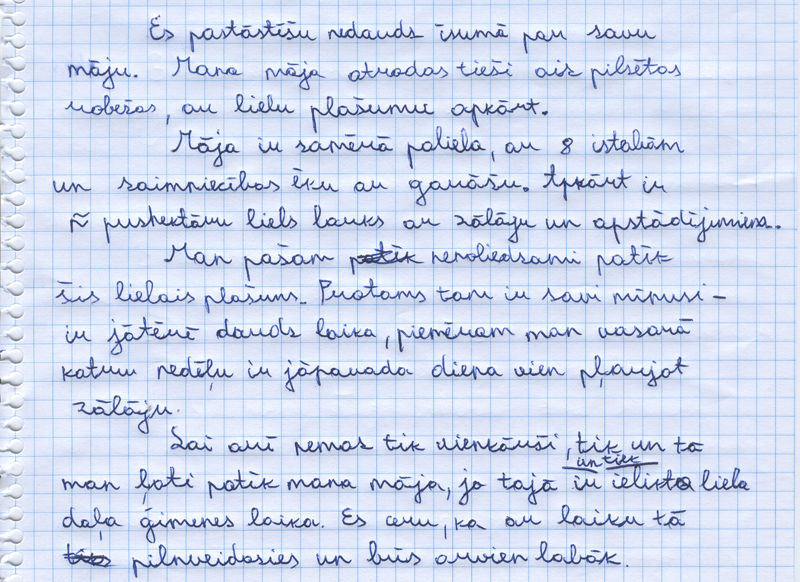 Es pastāstīšu nedaudz īsumā par savu
māju. Mana māja atrodas tieši aiz pilsētas
robežas, ar lielu plašumu apkārt.
Māja ir samērā paliela, ar 8 istabām
un saimniecības ēku ar garāžu. Apkārt ir
~ pushektāru liels lauks ar zālāju un apstādījumiem.
Man pašam patīk nenoliedzami patīk
šis lielais plašums. Protams tam ir savi mīnusi -
ir jātērē daudz laika, piemēram man vasarā
katru nedēļu ir jāpavada diena vien pļaujot
zālāju.
Lai arī nemaz tik vienkārši, tik un tā
un tiek
man ļoti patīk mana māja, jo tajā ir ielikta liela
daļa ģimenes laika. Es ceru, ka ar laiku tā
pilnveidosies un būs arvien labāk.